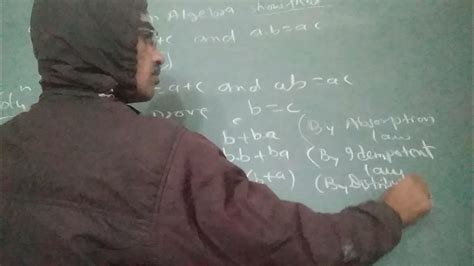 n Algebra show that
+c and ab=ac
=a+c and ab=ac
prove b=c
b+ba (By Absorption
law
b.b+ba (By Idempotent
law
(b+a) (By Distribu